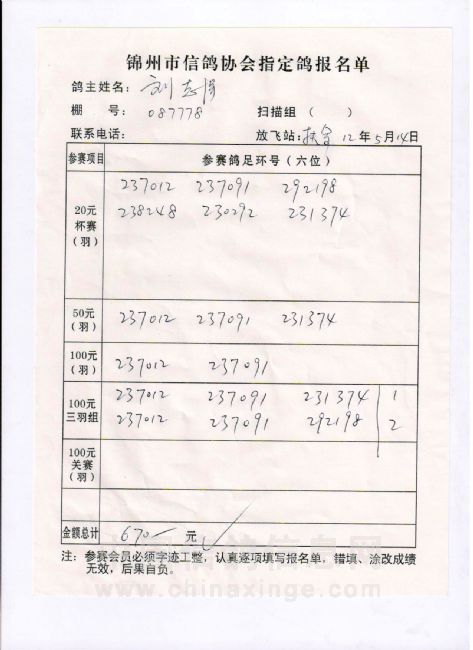 锦州市信鸽协会指定鸽报名单
鸽主姓名： 刘志
棚 号： 087778 扫描组（ ）
联系电话： 放飞站： 12年5月14日
参赛项目 参赛鸽足环号（六位）
20元杯赛（羽） 237012 237091 292198
238248 230292 231374
50元（羽） 237012 237091 231374
100元（羽） 237012 237091
100元三羽组 237012 237091 231374 1
237012 237091 292198 2
100元关赛（羽）
金额总计 670 元
注：参赛会员必须字迹工整，认真逐项填写报名单，错填、涂改成绩
无效，后果自负。
www.chinaxinge.com